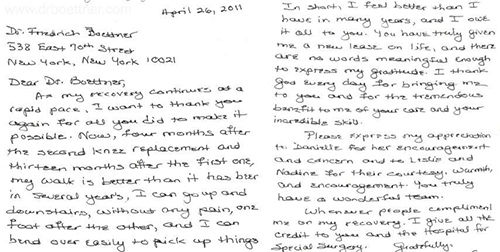 www.drboettner.com
April 26, 2011
Dr. Friedrich Boettner
538 East 70th Street
New York, New York 10021
Dear Dr. Boettner,
As my recovery continues at a
rapid pace, I want to thank you
again for all you did to make it
possible. Now, four months after
the second knee replacement and
thirteen months after the first one,
my walk is better than it has been
in several years, I can go up and
downstairs, without any pain, one
foot after the other, and I can
bend over easily to pick up things
In short, I feel better than I
have in many years, and I owe
it all to you. You have truly given
me a new lease on life, and there
are no words meaningful enough
to express my gratitude. I thank
God every day for bringing me
to you and for the tremendous
benefit to me of your care and your
incredible skill.
Please express my appreciation
to Danielle for her encouragement
and concern and to Leslie and
Nadine for their courtesy, warmth,
and encouragement. You truly
have a wonderful team.
Whenever people compliment
me on my recovery, I give all the
credit to you and the Hospital for
Special Surgery. Gratefully,